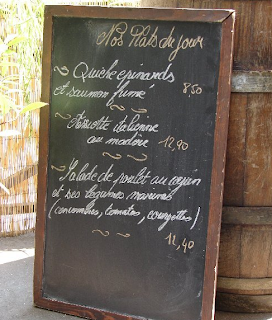 Nos Plats du jour
Quiche epinards
et saumon fumé 8,50
italienne
au madère 12,90
Salade de poulet au
et ses légumes marinés
(concombres, tomates, courgettes)
12,40